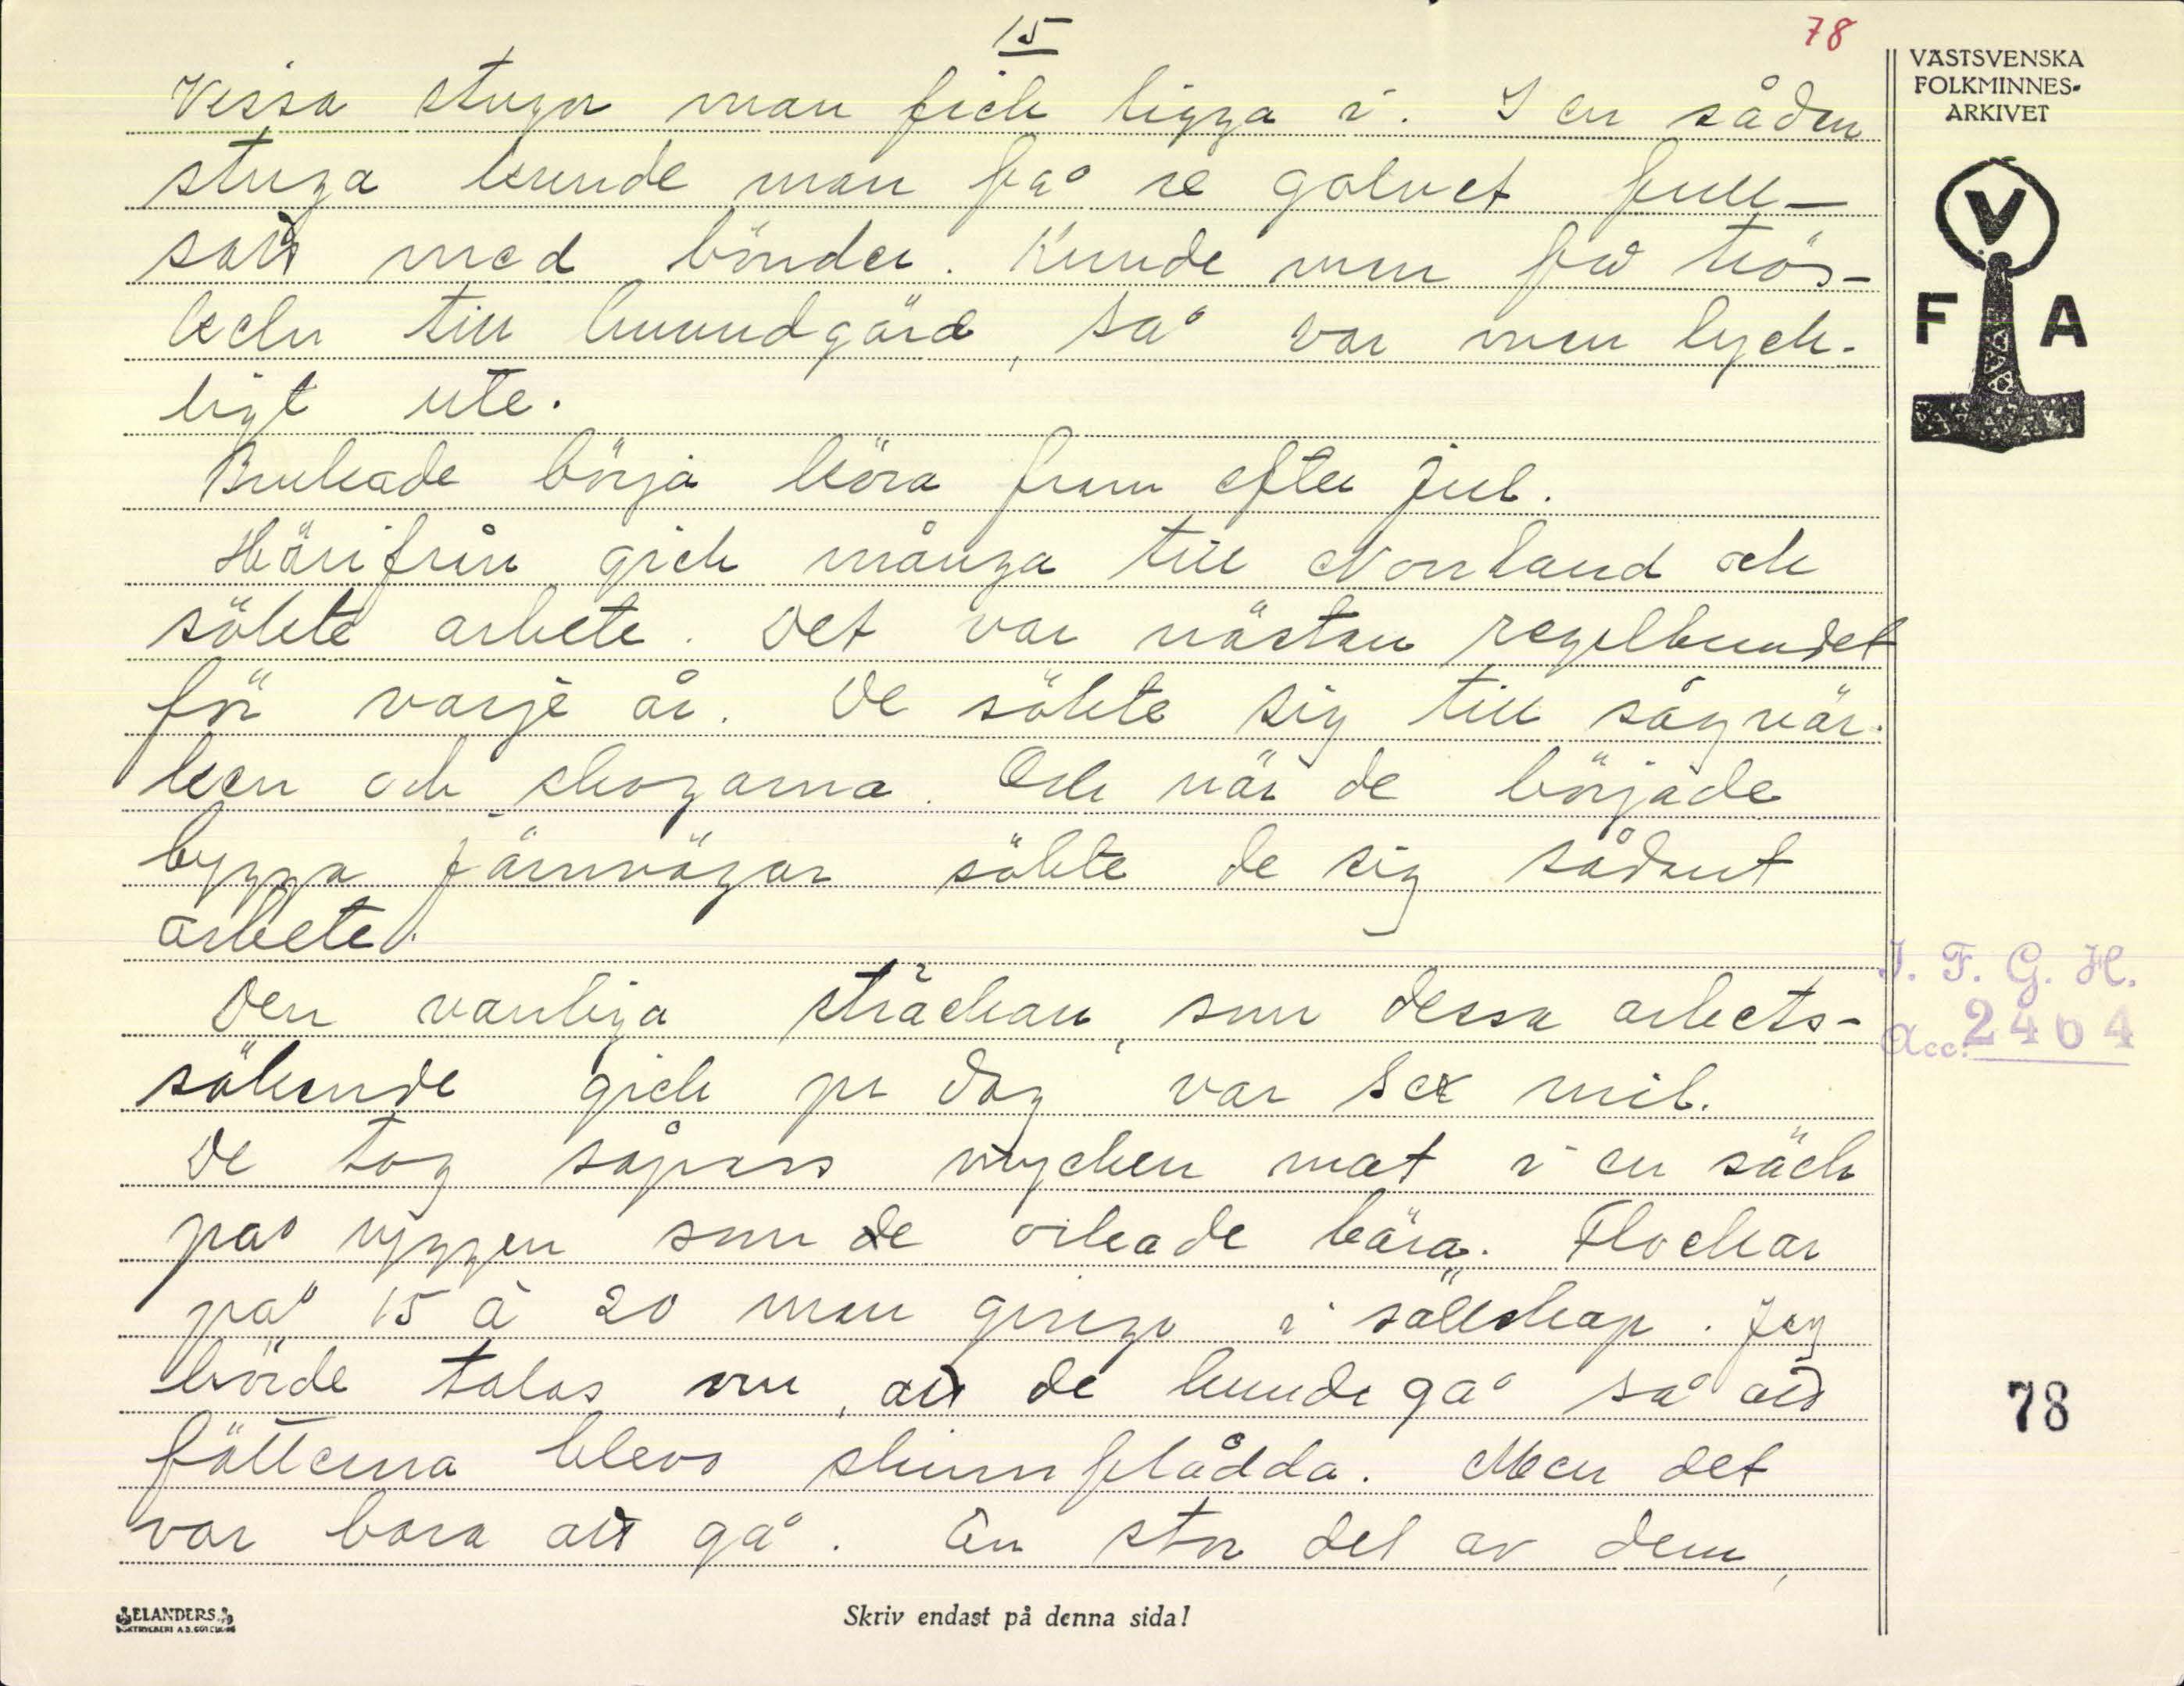 15
78
VÄSTSVENSKA
FOLKMINNES-
ARKIVET
Vissa stugor man fick ligga i. I en sådan
stuga kunde man få se golvet full-
satt med bönder. Kunde man få trös-
keln till huvudgärd, så var man lyck-
ligt ute.
Brukade börja köra fram efter jul.
Härifrån gick många till Norrland och
sökte arbete. Det var nästan regelbundet
för varje år. De sökte sig till sågvär-
ken och skogarna. Och när de började
bygga järnvägar sökte de sig sådant
arbete.
Den vanliga sträckan, som dessa arbets-
sökande gick pr dag var sex mil.
De tog såpass mycken mat i en säck
på ryggen som de orkade bära. Flockar
på 15 à 20 man gingo i sällskap. Jag
hörde talas om, att de kunde gå så att
fötterna blevo skinnflådda. Men det
var bara att gå. En stor del av dem,
V
F A
I. F. G. H.
Acc. 2464
78
ELANDERS
Skriv endast på denna sida!